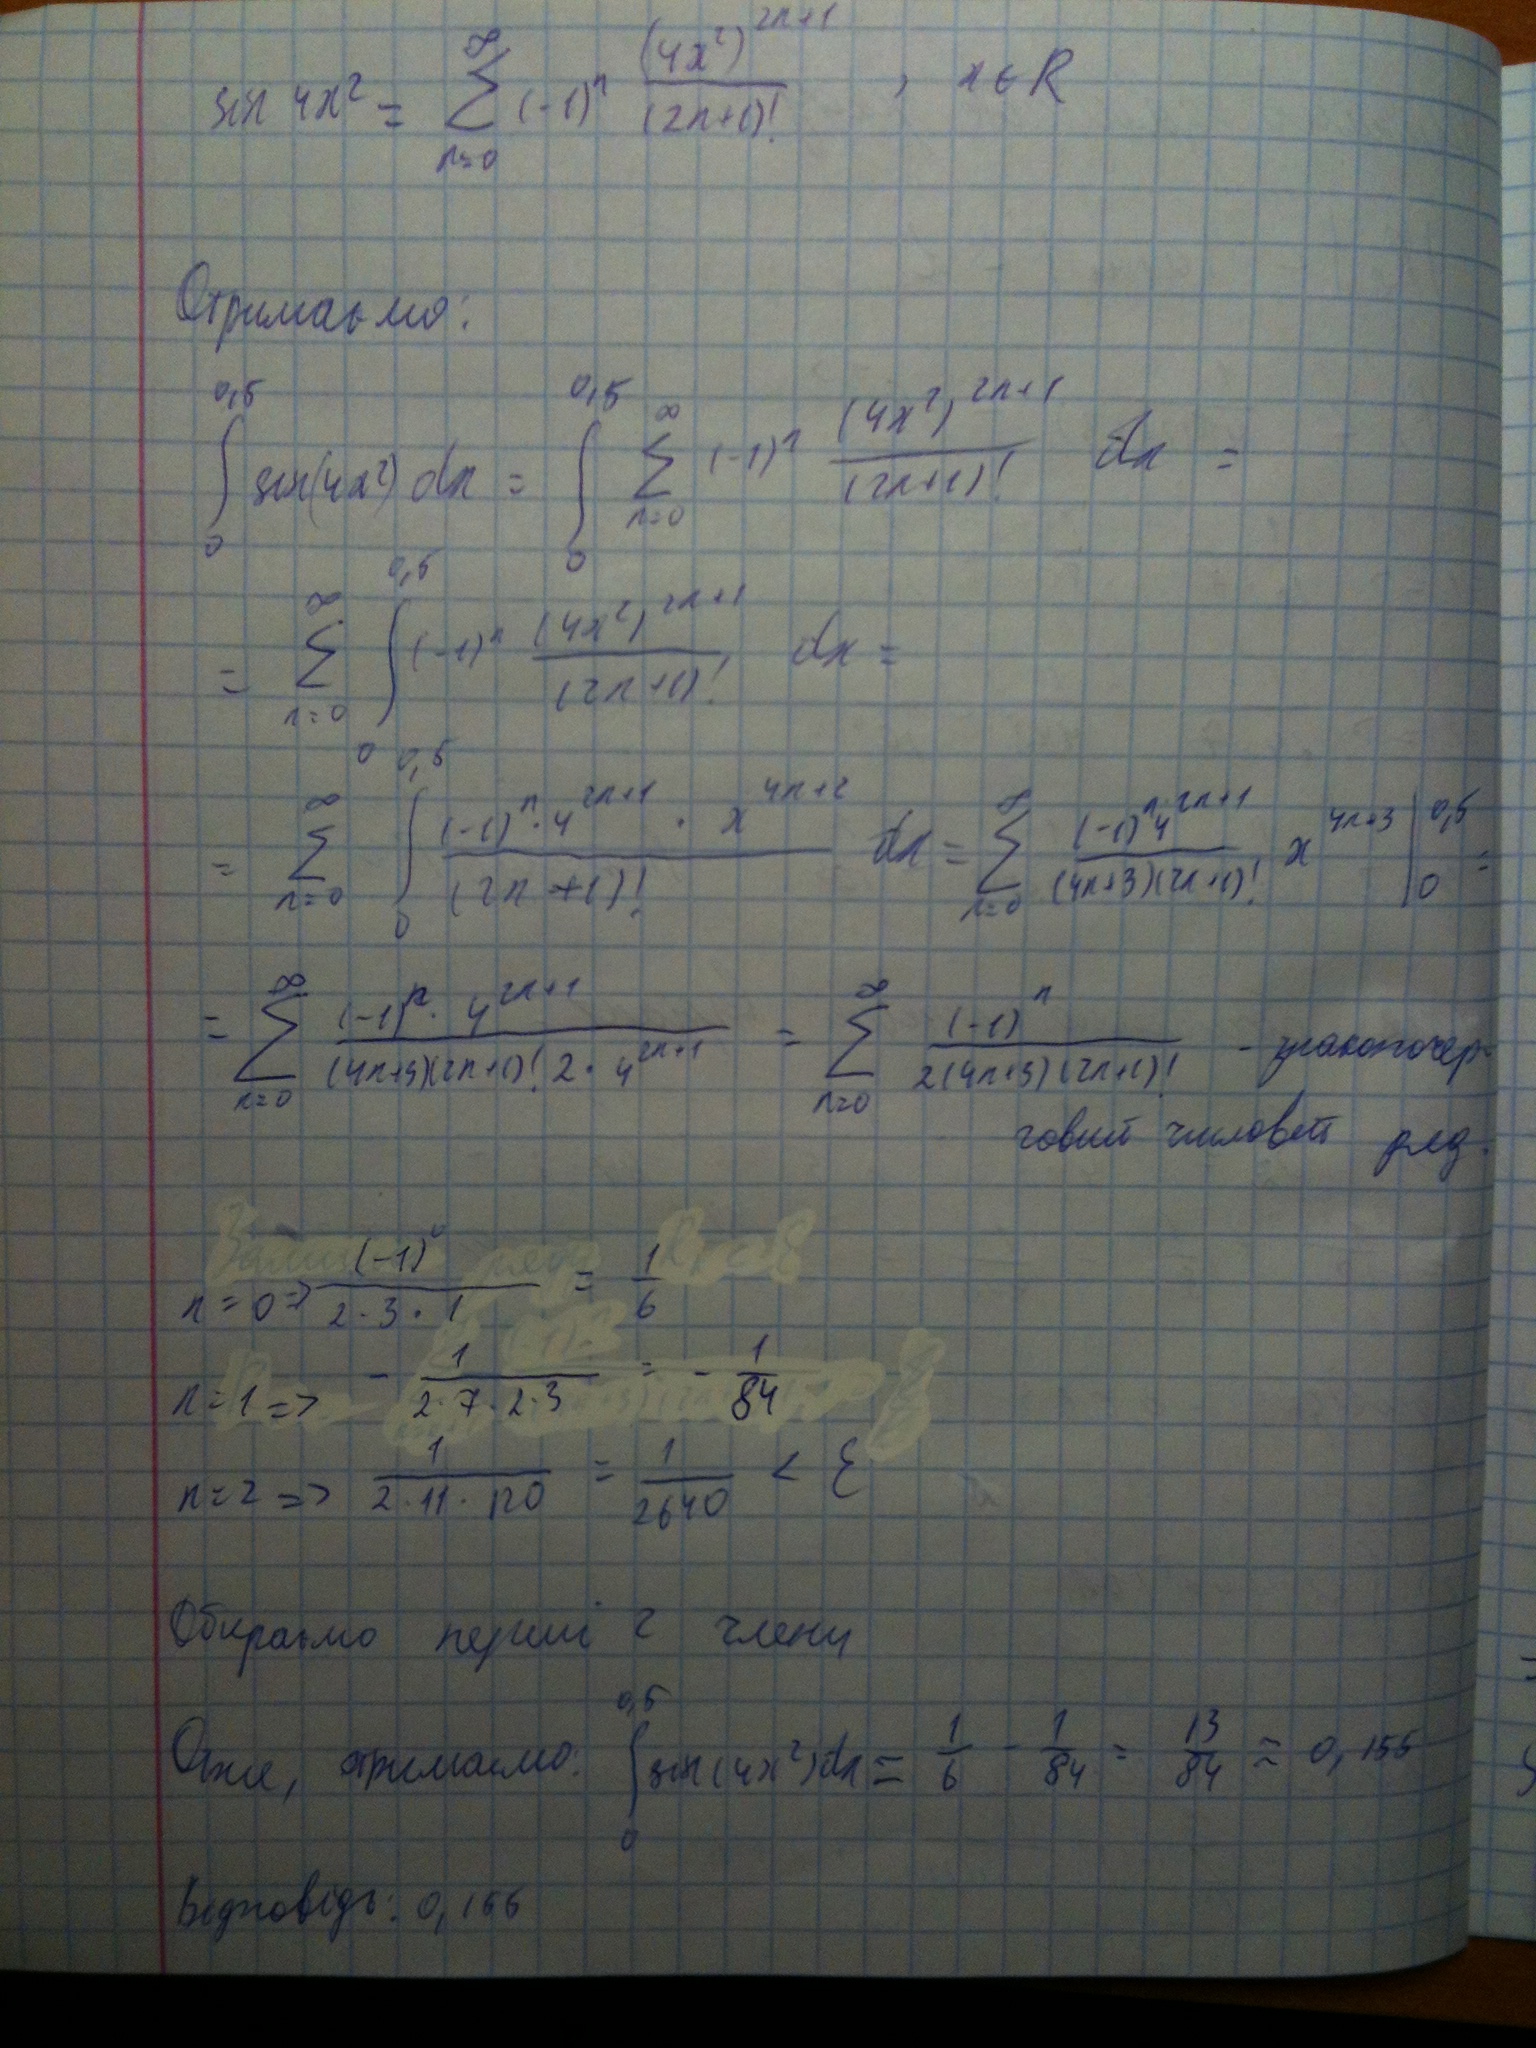 sin 4x² = ∑_{n=0}^{∞} (-1)ⁿ (4x²)^{2n+1} / (2n+1)! , x ∈ R
Отримаємо:
∫_0^{0,5} sin(4x²) dx = ∫_0^{0,5} ∑_{n=0}^{∞} (-1)ⁿ (4x²)^{2n+1} / (2n+1)! dx =
= ∑_{n=0}^{∞} ∫_0^{0,5} (-1)ⁿ (4x²)^{2n+1} / (2n+1)! dx =
= ∑_{n=0}^{∞} ∫_0^{0,5} (-1)ⁿ · 4^{2n+1} · x^{4n+2} / (2n+1)! dx = ∑_{n=0}^{∞} (-1)ⁿ 4^{2n+1} / (4n+3)(2n+1)! x^{4n+3} |_0^{0,5} =
= ∑_{n=0}^{∞} (-1)ⁿ · 4^{2n+1} / (4n+3)(2n+1)! 2 · 4^{2n+1} = ∑_{n=0}^{∞} (-1)ⁿ / 2(4n+3)(2n+1)! - знакопочер-
говий числовий ряд.
n = 0 => (-1)⁰ / 2 · 3 · 1 = 1/6
n = 1 => - 1 / 2 · 7 · 2 · 3 = - 1/84
n = 2 => 1 / 2 · 11 · 120 = 1/2640 < ε
Обираємо перші 2 члени
Отже, отримаємо: ∫_0^{0,5} sin(4x²) dx = 1/6 - 1/84 = 13/84 ≈ 0,155
Відповідь: 0,155